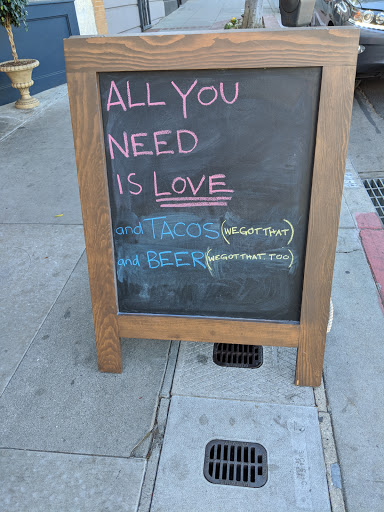 ALL YOU
NEED
IS LOVE
and TACOS (WE GOT THAT)
and BEER (WE GOT THAT, TOO)